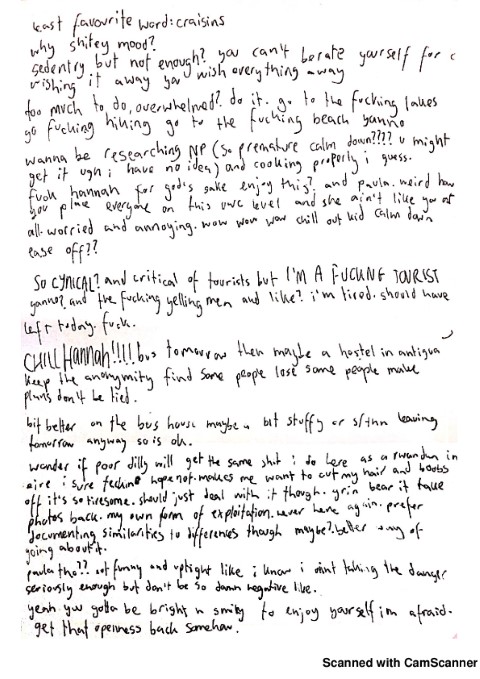 least favourite word: craisins
why shitey mood?
sedentry but not enough? you can't berate yourself for
wishing it away you wish everything away
too much to do, overwhelmed? do it. go to the fucking lakes
go fucking hiking go to the fucking beach yanno
wanna be researching NP (so premature calm down???? u might
get it ugh i have no idea) and cooking properly i guess.
fuck hannah for god's sake enjoy this? and paula. weird how
you place everyone on this uwc level and she ain't like you at
all. worried and annoying. wow wow wow chill out kid calm down
ease off??
SO CYNICAL? and critical of tourists but I'M A FUCKING TOURIST
yanno? and the fucking yelling men and like? i'm tired. should have
left today. fuck.
CHILL Hannah!!!! bus tomorrow then maybe a hostel in antigua
keep the anonymity find some people lose some people make
plans don't be tied.
bit better on the bus house maybe a bit stuffy or s/thn leaving
tomorrow anyway so is ok.
wonder if poor dilly will get the same shit i do here as a rwandan in
eire i sure fecking hope not. makes me want to cut my hair and boobs
off it's so tiresome. should just deal with it though. grin bear it take
photos back. my own form of exploitation. never here again. prefer
documenting similarities to differences though maybe? better way of
going about it.
paula tho?? not funny and uptight like i know i aint taking the danger
seriously enough but don't be so damn negative like.
yeah yuv gotta be bright n smiley to enjoy yourself im afraid.
get that openness back somehow.
Scanned with CamScanner